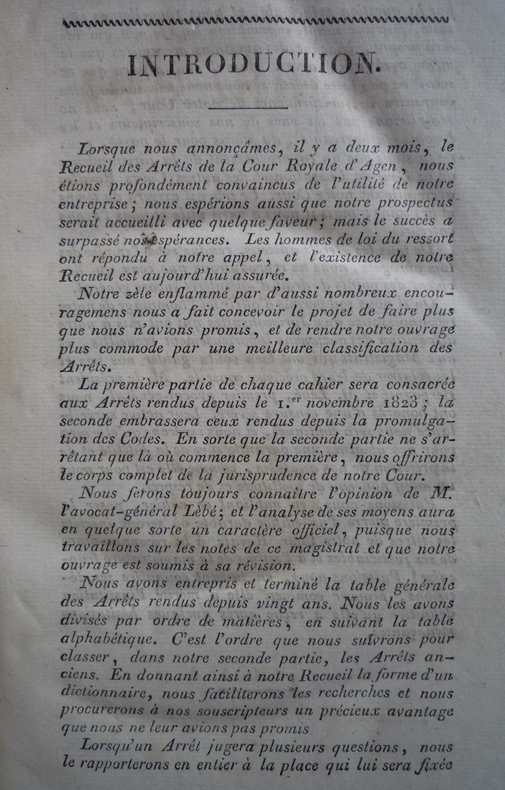 INTRODUCTION.
Lorsque nous annonçâmes, il y a deux mois, le
Recueil des Arrêts de la Cour Royale d'Agen, nous
étions profondément convaincus de l'utilité de notre
entreprise; nous espérions aussi que notre prospectus
serait accueilli avec quelque faveur; mais le succès a
surpassé nos espérances. Les hommes de loi du ressort
ont répondu à notre appel, et l'existence de notre
Recueil est aujourd'hui assurée.
Notre zèle enflammé par d'aussi nombreux encou-
ragemens nous a fait concevoir le projet de faire plus
que nous n'avions promis, et de rendre notre ouvrage
plus commode par une meilleure classification des
Arrêts.
La première partie de chaque cahier sera consacrée
aux Arrêts rendus depuis le 1.er novembre 1823; la
seconde embrassera ceux rendus depuis la promulga-
tion des Codes. En sorte que la seconde partie ne s'ar-
rêtant que là où commence la première, nous offrirons
le corps complet de la jurisprudence de notre Cour.
Nous ferons toujours connaitre l'opinion de M.
l'avocat-général Lèbé; et l'analyse de ses moyens aura
en quelque sorte un caractère officiel, puisque nous
travaillons sur les notes de ce magistrat et que notre
ouvrage est soumis à sa révision.
Nous avons entrepris et terminé la table générale
des Arrêts rendus depuis vingt ans. Nous les avons
divisés par ordre de matières, en suivant la table
alphabétique. C'est l'ordre que nous suivrons pour
classer, dans notre seconde partie, les Arrêts an-
ciens. En donnant ainsi à notre Recueil la forme d'un
dictionnaire, nous faciliterons les recherches et nous
procurerons à nos souscripteurs un précieux avantage
que nous ne leur avions pas promis
Lorsqu'un Arrêt jugera plusieurs questions, nous
le rapporterons en entier à la place qui lui sera fixée